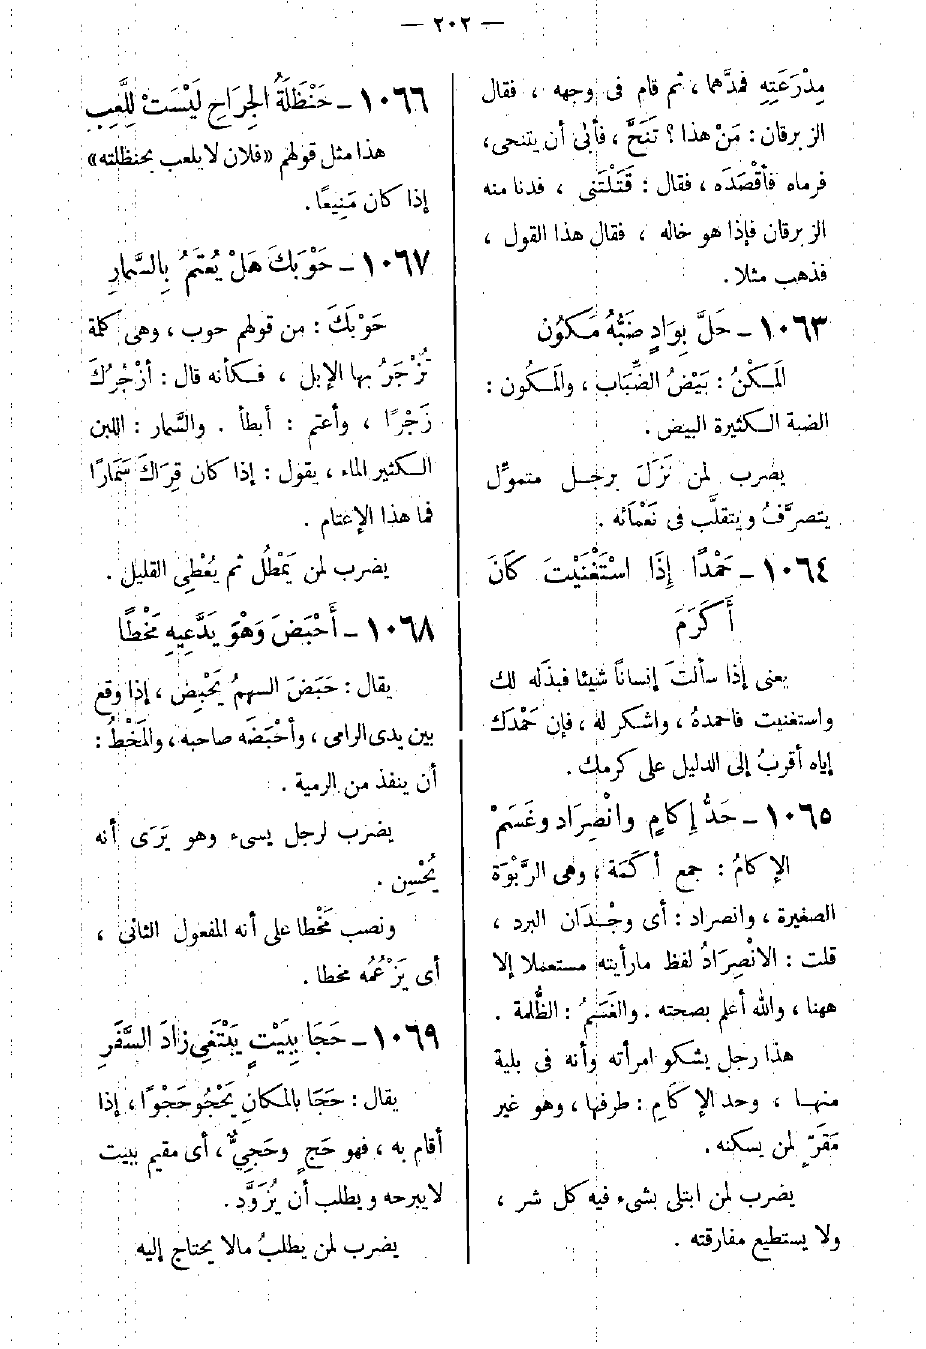 — ٢٠٢ —
مِدْرَعَتِهِ فمدَّهما ، ثم قام فى وجهه ، فقال
الزبرقان : مَنْ هذا ؟ تَنَحَّ ، فأبى أن يتنحى ،
فرماه فأقْصَدَه ، فقال : قَتَلْتَنى ، فدنا منه
الزبرقان فإذا هو خاله ، فقال هذا القول ،
فذهب مثلا .
١٠٦٣ – حَلَّ بِوَادٍ ضَبُّهُ مَكُون
المَكْنُ : بَيْضُ الضِّبَاب ، والمَكُون :
الضبة الكثيرة البيض .
يضرب لمن نَزَلَ برجل متموِّل
يتصرَّفُ ويتقلَّب فى نَعْمَائه .
١٠٦٤ – حَمْدًا إِذَا اسْتَغْنَيْتَ كَانَ
أَكْرَمَ
يعنى إذا سألتَ إنساناً شيئا فبذَله لك
واستغنيت فاحمدهُ ، واشكر له ، فإن حَمْدَك
إياه أقربُ إلى الدليل على كرمك .
١٠٦٥ – حَدُّ إِكامٍ وانْصِرَاد وغَسَمْ
الإكامُ : جمع أكَمَة ، وهى الرَّبْوَة
الصغيرة ، وانصراد : أى وجْدَان البرد ،
قلت : الانْصِرَادُ لفظ مارأيته مستعملا إلا
ههنا ، والله أعلم بصحته . والغَسَمُ : الظُّلمة .
هذا رجل يشكو امرأته وأنه فى بلية
منها ، وحد الإكَامِ : طرفها ، وهو غير
مَقَرٍّ لمن يسكنه .
يضرب لمن ابتلى بشىء فيه كل شر ،
ولا يستطيع مفارقته .
١٠٦٦ – حَنْظَلَةُ الجِرَاحِ لَيْسَتْ لِلَّعِبِ
هذا مثل قولهم «فلان لا يلعب بحنظلته»
إذا كان مَنِيعًا .
١٠٦٧ – حَوْبَكَ هَلْ يُعْتَمُ بِالسَّمَارِ
حَوْبَكَ : من قولهم حوب ، وهى كلمة
تُزْجَرُ بها الإبل ، فكأنه قال : أزْجُرُكَ
زَجْرًا ، وأعتم : أبطأ . والسَّمار : اللبن
الكثير الماء ، يقول : إذا كان قِرَاكَ سَمَارًا
فما هذا الإعتام .
يضرب لمن يَمْطُل ثم يُعْطِى القليل .
١٠٦٨ – أَحْبَضَ وَهْوَ يَدَّعِيهِ مَخْطًا
يقال : حَبَضَ السهمُ يَحْبِض ، إذا وقع
بين يدى الرامى ، وأحْبَضَه صاحبه ، والمَخْطُ :
أن ينفذ من الرمية .
يضرب لرجل يسىء وهو يَرَى أنه
يُحْسِن .
ونصب مَخْطا على أنه المفعول الثانى ،
أى يَزْعُمُه مخطا .
١٠٦٩ – حَجَا بِبَيْتٍ يَبْتَغِى زادَ السَّفَرِ
يقال : حَجَا بالمكانِ يَحْجُو حَجْوًا ، إذا
أقام به ، فهو حَجٍ وحَجِىٌّ ، أى مقيم ببيت
لايبرحه ويطلب أن يُزَوَّد .
يضرب لمن يطلبُ مالا يحتاج إليه